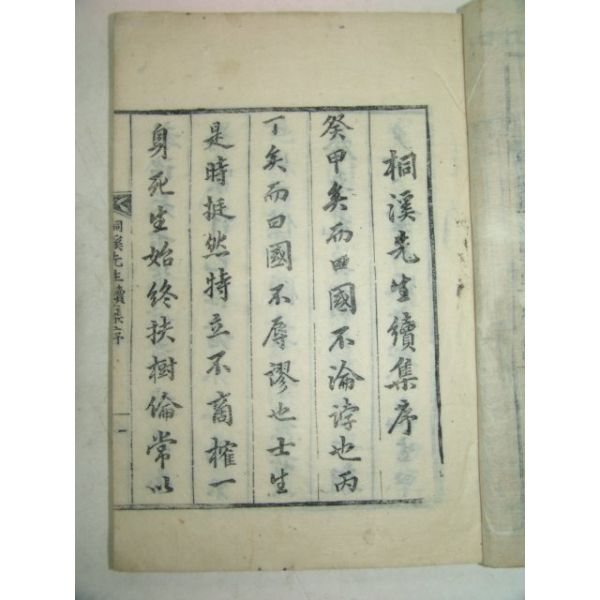 桐溪先生續集序
癸甲矣而曰國不淪誖也丙
丁矣而曰國不辱謬也士生
是時挺然特立不商搉一
身死生始終扶樹倫常以
桐溪先生續集序
一